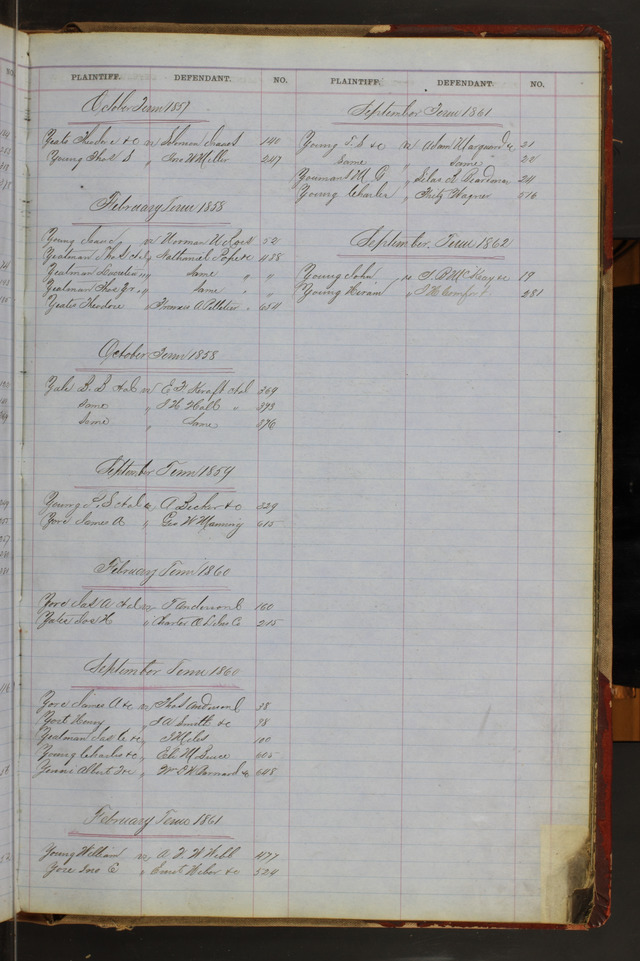 PLAINTIFF. DEFENDANT. NO.
October Term 1857
Yeats Theodore &c vs Solomon Isaacs 140
Young Thos S " Jno W Miller 247
February Term 1858
Young Isaac vs Norman 52
Yeatman Thos &al " Nathaniel Pope &c 488
Yeatman " same " "
Yeatman Thos Jr " same " "
Yeates Theodore " A Pelletier " 634
October Term 1858
Yale B. B &al vs E F Kraft &al 369
Same " J H Hall " 393
Same " Same 396
September Term 1859
Young T. S &al vs A Becker &c 329
Yore James A " Geo W Manning 615
February Term 1860
Yore Jas A &al vs T Anderson 160
Yates Jos H " 215
September Term 1860
Yore James A &c vs Thos Anderson 38
Yost Henry " J A Smith &c 98
Yeatman Jas &c " J Miles 100
Young Charles &c " Eli M Bruce 605
Albert " Wm E H Barnard &c 648
February Term 1861
Young William vs A F W Webb 477
Yore Jno E " Ernst Weber &c 524
PLAINTIFF. DEFENDANT. NO.
September Term 1861
Young T. S &c vs Adam &c 21
Same " Same 22
Youmans M C " Silas R Beardman 24
Young Charles " Fritz Wagner 516
September Term 1862
Young John vs McKay &c 19
Young Hiram " J H Comfort 281